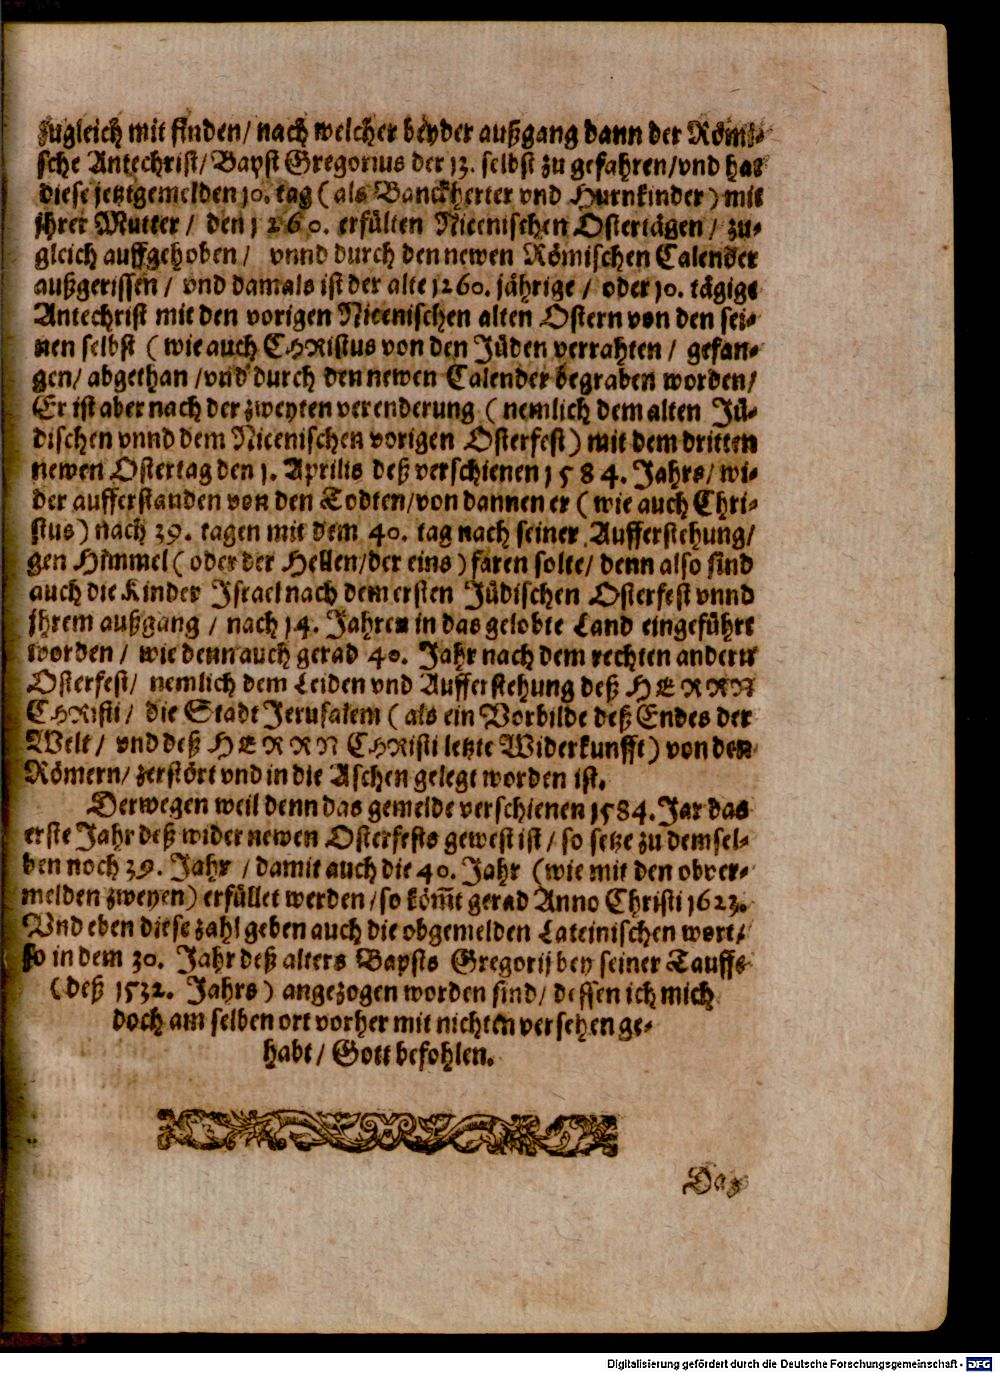 zugleich mit finden/ nach welcher beyder außgang dann der Römi-
sche Antechrist/ Bapst Gregorius der 13. selbst zu gefahren/ vnd hat
diese jetztgemelden 10. tag ( als Banckherter vnd Hurnkinder ) mit
jhrer Mutter / den 1260. erfülten Nicenischen Ostertägen / zu-
gleich auffgehoben / vnnd durch den newen Römischen Calender
außgerissen / vnd damals ist der alte 1260. jährige / oder 10. tägige
Antechrist mit den vorigen Nicenischen alten Ostern von den sei-
nen selbst ( wie auch CHRistus von den Jüden verrahten / gefan-
gen/ abgethan / vnd durch den newen Calender begraben worden/
Er ist aber nach der zweyten verenderung ( nemlich dem alten Jü-
dischen vnnd dem Nicenischen vorigen Osterfest ) mit dem dritten
newen Ostertag den 1. Aprilis deß verschienen 1584. Jahrs/ wi-
der aufferstanden von den Todten/ von dannen er ( wie auch Chri-
stus ) nach 39. tagen mit dem 40. tag nach seiner Aufferstehung/
gen Himmel ( oder der Hellen/ der eins ) faren solte/ denn also sind
auch die Kinder Israel nach dem ersten Jüdischen Osterfest vnnd
jhrem außgang / nach 14. Jahren in das gelobte Land eingeführt
worden / wie denn auch gerad 40. Jahr nach dem rechten andern
Osterfest/ nemlich dem Leiden vnd Aufferstehung deß HERRN
CHRisti / die Stadt Jerusalem ( als ein Vorbilde deß Endes der
Welt / vnd deß HERRN CHRisti letzte Widerkunfft ) von den
Römern/ zerstört vnd in die Aschen gelegt worden ist.
Derwegen weil denn das gemelde verschienen 1584. Jar das
erste Jahr deß wider newen Osterfests gewest ist / so setze zu demsel-
ben noch 39. Jahr / damit auch die 40. Jahr ( wie mit den obver-
melden zweyen ) erfüllet werden / so köm̃t gerad Anno Christi 1623.
Vnd eben diese zahl geben auch die obgemelden Lateinischen wort/
so in dem 30. Jahr deß alters Bapsts Gregorij bey seiner Tauffe
( deß 1532. Jahrs ) angezogen worden sind/ dessen ich mich
doch am selben ort vorher mit nichten versehen ge-
habt / Gott befohlen.
Das
Digitalisierung gefördert durch die Deutsche Forschungsgemeinschaft - DFG